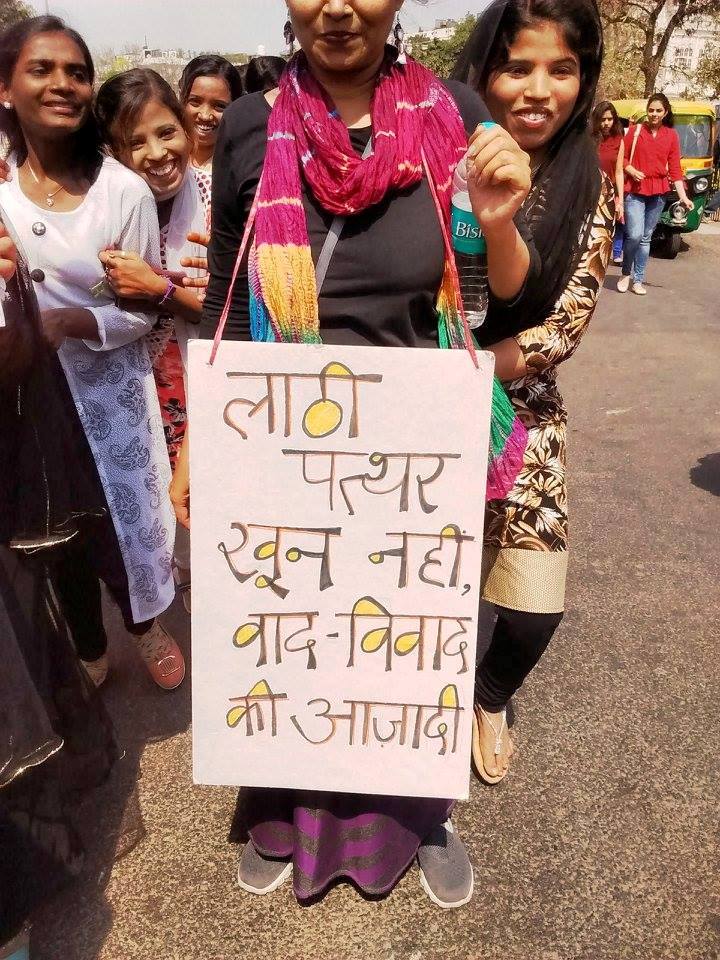 Bisl
लाठी
पत्थर
खून नहीं,
वाद-विवाद
की आज़ादी